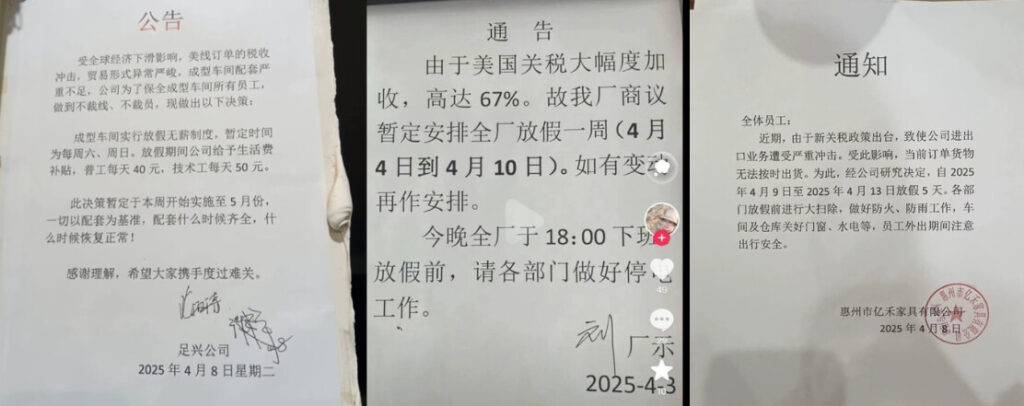 公告
受全球经济下滑影响，美线订单的税收
冲击，贸易形式异常严峻，成型车间配套严
重不足，公司为了保全成型车间所有员工，
做到不裁线、不裁员，现做出以下决策：
成型车间实行放假无薪制度，暂定时间
为每周六、周日。放假期间公司给予生活费
补贴，普工每天 40 元，技术工每天 50 元。
此决策暂定于本周开始实施至 5 月份，
一切以配套为基准，配套什么时候齐全，什
么时候恢复正常！
感谢理解，希望大家携手度过难关。
足兴公司
2025 年 4 月 8 日星期二
通 告
由于美国关税大幅度加
收，高达 67%。故我厂商议
暂定安排全厂放假一周（4 月
4 日到 4 月 10 日）。如有变动
再作安排。
今晚全厂于 18:00 下班
放假前，请各部门做好停电
工作。
刘 厂示
2025-4-3
49
通知
全体员工：
近期，由于新关税政策出台，致使公司进出
口业务遭受严重冲击。受此影响，当前订单货物
无法按时出货。为此，经公司研究决定，自 2025
年 4 月 9 日至 2025 年 4 月 13 日放假 5 天。各部
门放假前进行大扫除，做好防火、防雨工作，车
间及仓库关好门窗、水电等，员工外出期间注意
出行安全。
惠州市亿禾家具有限公司
2025 年 4 月 8 日